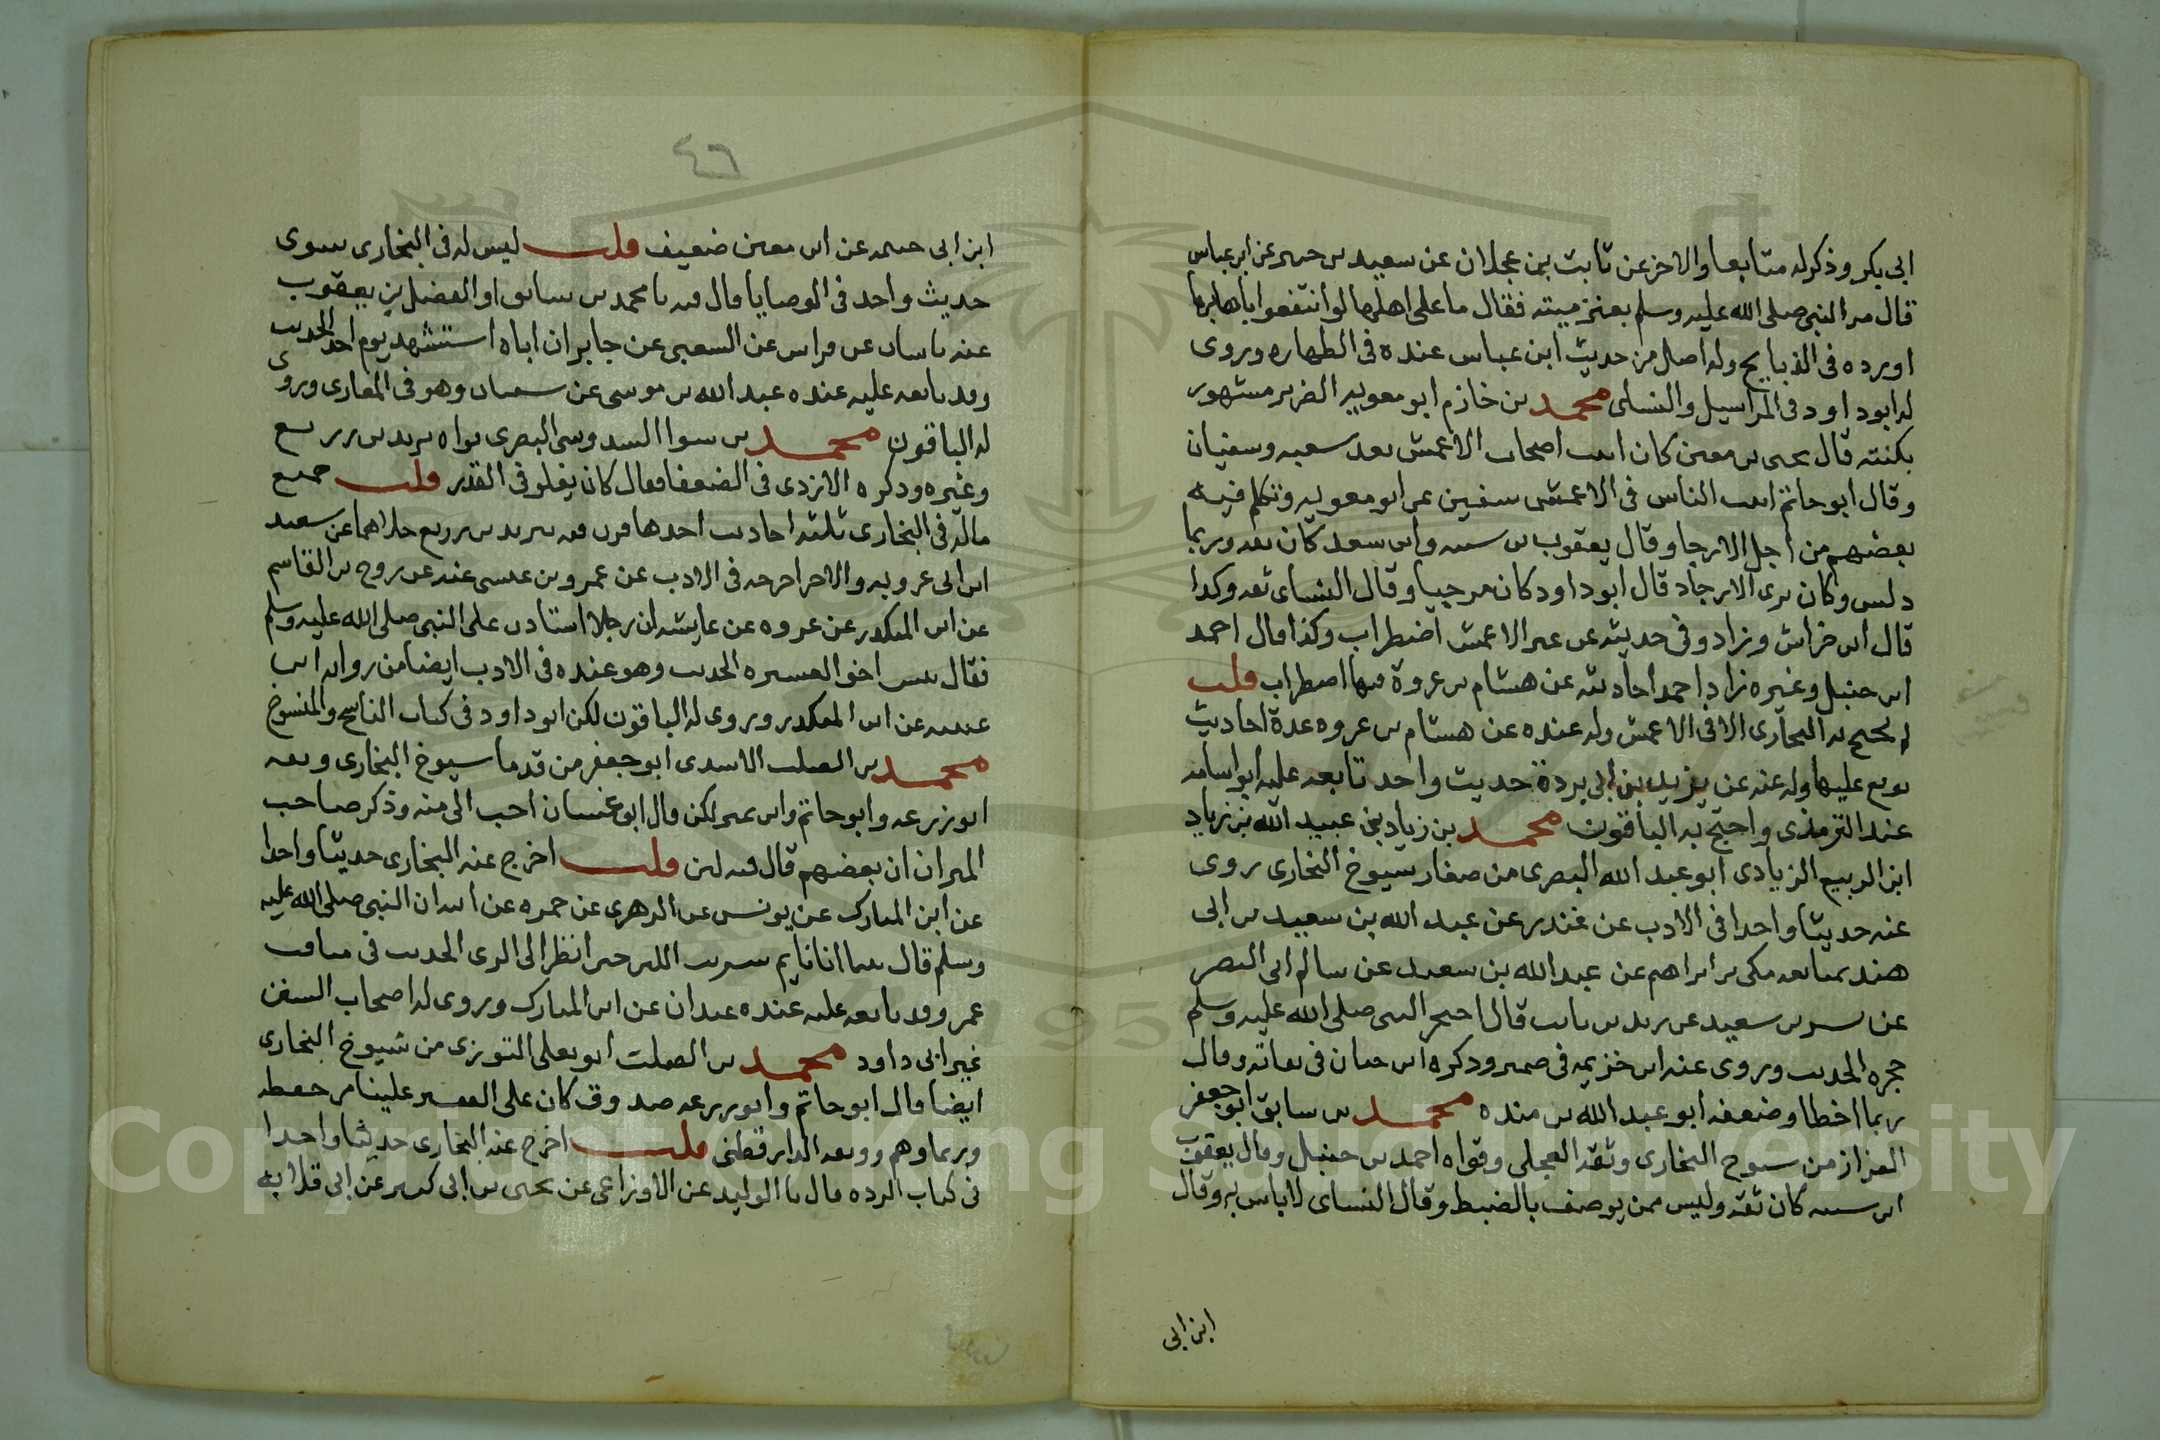 ابى بكر وذكر له متابعا والاخر عن ثابت بن عجلان عن سعيد بن جبير عن ابن عباس
قال مر النبى صلى الله عليه وسلم بعنز ميتة فقال ما على اهلها لو انتفعوا باهابها
اورده فى الذبايح وله اصل من حديث ابن عباس عنده فى الطهاره وروى
له ابو داود فى المراسيل والنساى محمد بن خازم ابو معويه الضرير مشهور
بكنيته قال يحيى بن معين كان اثبت اصحاب الاعمش بعد شعبه وسفيان
وقال ابو حاتم اثبت الناس فى الاعمش سفين ثم ابو معويه وتكلم فيه
بعضهم من اجل الارجا وقال يعقوب بن شيبه وابن سعد كان ثقه وربما
دلس وكان يرى الارجاد قال ابو داود كان مرجيا وقال النساى ثقه وكذا
قال ابن خراش وزاد وفى حديثه عن غير الاعمش اضطراب وكذا قال احمد
ابن حنبل وغيره زاد احمد احاديثه عن هشام بن عروة فيها اضطراب قلت
لم يحتج به البخارى الا فى الاعمش وله عنده عن هشام بن عروه عدة احاديث
توبع عليها وله عنه عن يزيد بن ابى بردة حديث واحد تابعه عليه ابو اسامه
عند الترمذى واحتج به الباقون محمد بن زياد بن عبيد الله بن زياد
ابن الربيع الزيادى ابو عبد الله البصرى من صغار شيوخ البخارى روى
عنه حديثا واحدا فى الادب عن غندر عن عبد الله بن سعيد بن ابى
هند بمتابعه مكى بن ابراهيم عن عبد الله بن سعيد عن سالم ابى النضر
عن بسر بن سعيد عن زيد بن ثابت قال احتجر النبى صلى الله عليه وسلم
حجره الحديث وروى عنه ابن خزيمه فى صحيحه وذكره ابن حبان فى ثقاته وقال
ربما اخطا وضعفه ابو عبد الله بن منده محمد بن سابق ابو جعفر
البزاز من شيوخ البخارى وثقه العجلى وقواه احمد بن حنبل وقال يعقوب
ابن شيبه كان ثقه وليس ممن يوصف بالضبط وقال النساى لا باس به وقال
ابن ابى
٤٦
ابن ابى خيثمه عن ابن معين ضعيف قلت ليس له فى البخارى سوى
حديث واحد فى الوصايا قال فيه نا محمد بن سابق او الفضل بن يعقوب
عنه نا شيبان عن فراس عن الشعبى عن جابر ان اباه استشهد يوم احد الحديث
وقد تابعه عليه عنده عبد الله بن موسى عن شيبان وهو فى المغازى وروى
له الباقون محمد بن سوا السدوسى البصرى قواه يزيد بن زريع
وغيره وذكره الازدى فى الضعفا فقال كان يغلو فى القدر قلت جميع
ماله فى البخارى ثلثه احاديث احدها قرن فيه بيزيد بن زريع كلاهما عن سعيد
ابن ابى عروبه والاخر اخرجه فى الادب عن عمرو بن عيسى عنه عن روح بن القاسم
عن ابن المنكدر عن عروه عن عايشه ان رجلا استاذن على النبى صلى الله عليه وسلم
فقال بيس اخو العشيره الحديث وهو عنده فى الادب ايضا من روايه ابن
عيينه عن ابن المنكدر وروى له الباقون لكن ابو داود فى كتاب الناسخ والمنسوخ
محمد بن الصلت الاسدى ابو جعفر من قدما شيوخ البخارى وثقه
ابو زرعه وابو حاتم وابن نمير لكن قال ابو غسان احب الى منه وذكر صاحب
الميزان ان بعضهم قال فيه لين قلت اخرج عنه البخارى حديثا واحدا
عن ابن المبارك عن يونس عن الزهرى عن حمزه عن ابيه ان النبى صلى الله عليه
وسلم قال بينما انا نايم شربت اللبن حتى انظر الى الرى الحديث فى مناقب
عمر وقد تابعه عليه عنده عبدان عن ابن المبارك وروى له اصحاب السنن
غير ابى داود محمد بن الصلت ابو يعلى التوزى من شيوخ البخارى
ايضا قال ابو حاتم وابو زرعه صدوق كان على التفسير علينا من حفظه
وربما وهم ووثقه الدارقطنى قلت اخرج عنه البخارى حديثا واحدا
فى كتاب الرده قال نا الوليد عن الاوزاعى عن يحيى بن ابى كثير عن ابى قلابه
Copyright © King Saud University
1957